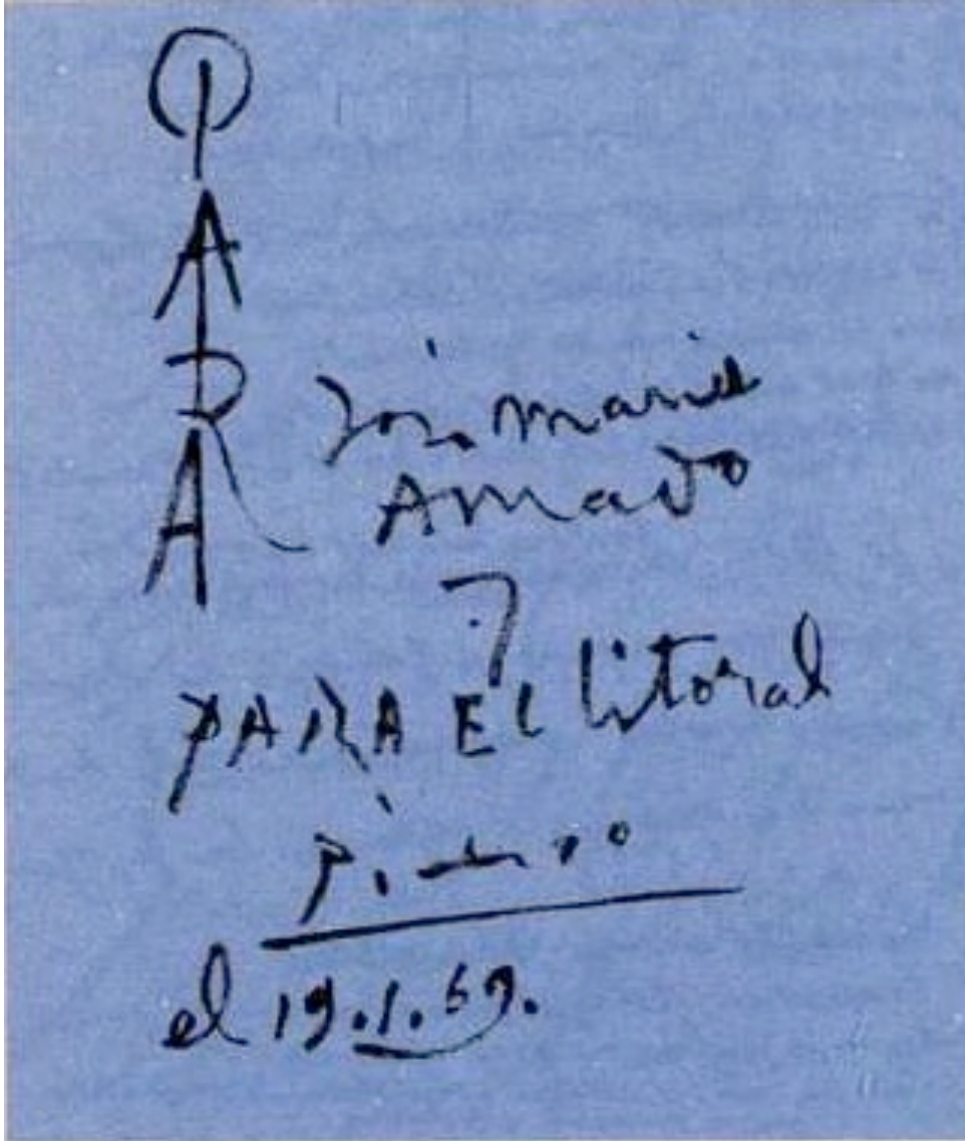 PARA
José maria
Amado
y
PARA El litoral
Picasso
el 19.1.69.